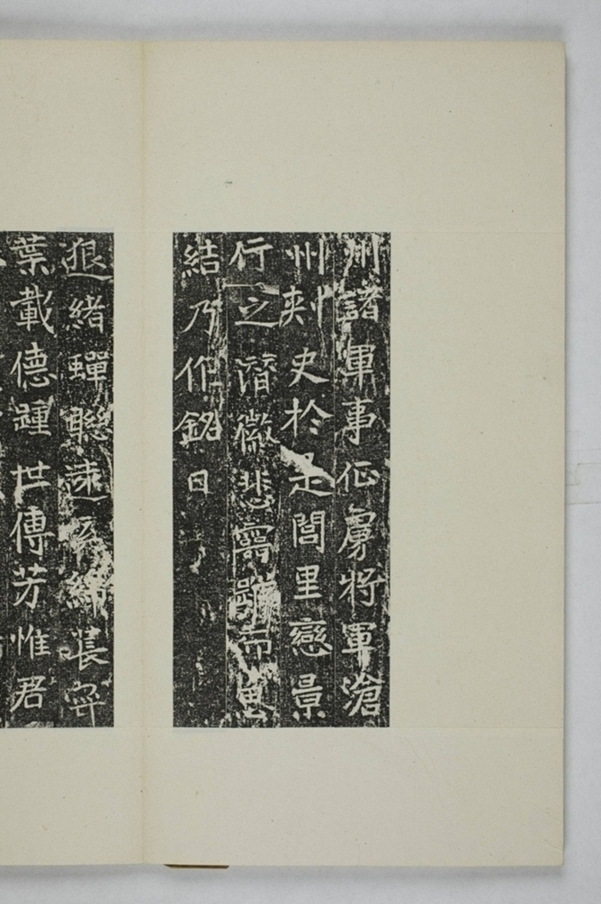 州諸軍事征虜將軍滄
州刺史於是閭里戀景
行之潛徽悲而
結乃作銘曰
遐緒蟬聯遠系綿長
葉載德踵世傳芳惟君